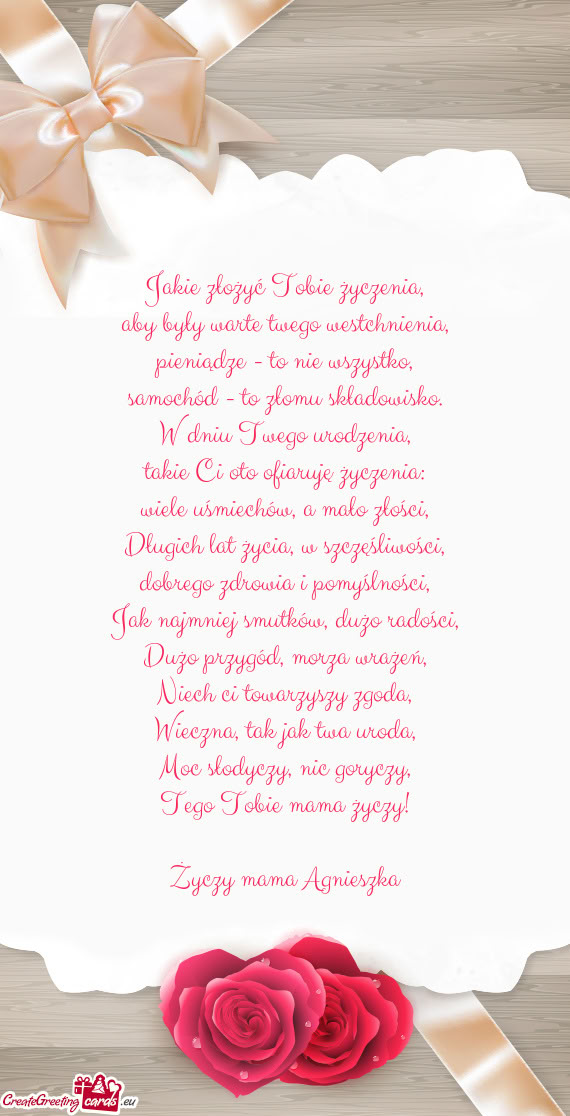 Jakie złożyć Tobie życzenia,
aby były warte twego westchnienia,
pieniądze - to nie wszystko,
samochód - to złomu składowisko.
W dniu Twego urodzenia,
takie Ci oto ofiaruję życzenia:
wiele uśmiechów, a mało złości,
Długich lat życia, w szczęśliwości,
dobrego zdrowia i pomyślności,
Jak najmniej smutków, dużo radości,
Dużo przygód, morza wrażeń,
Niech ci towarzyszy zgoda,
Wieczna, tak jak twa uroda,
Moc słodyczy, nic goryczy,
Tego Tobie mama życzy!
Życzy mama Agnieszka
CreateGreetingcards.eu